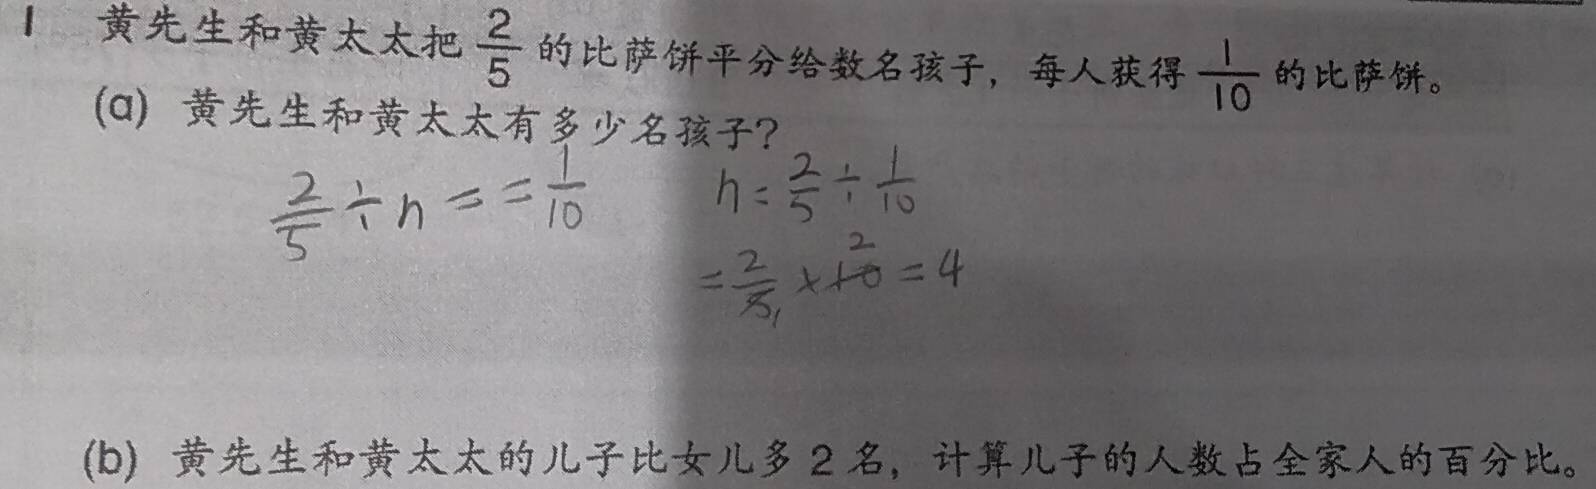 1 黄先生和黄太太把 2/5 的比萨饼平分给数名孩子，每人获得 1/10 的比萨饼。
(a) 黄先生和黄太太有多少名孩子？
2/5 ÷ n = = 1/10 n = 2/5 ÷ 1/10
= 2/5 1 × 10 2 = 4
(b) 黄先生和黄太太的儿子比女儿多 2 名，计算儿子的人数占全家人的百分比。